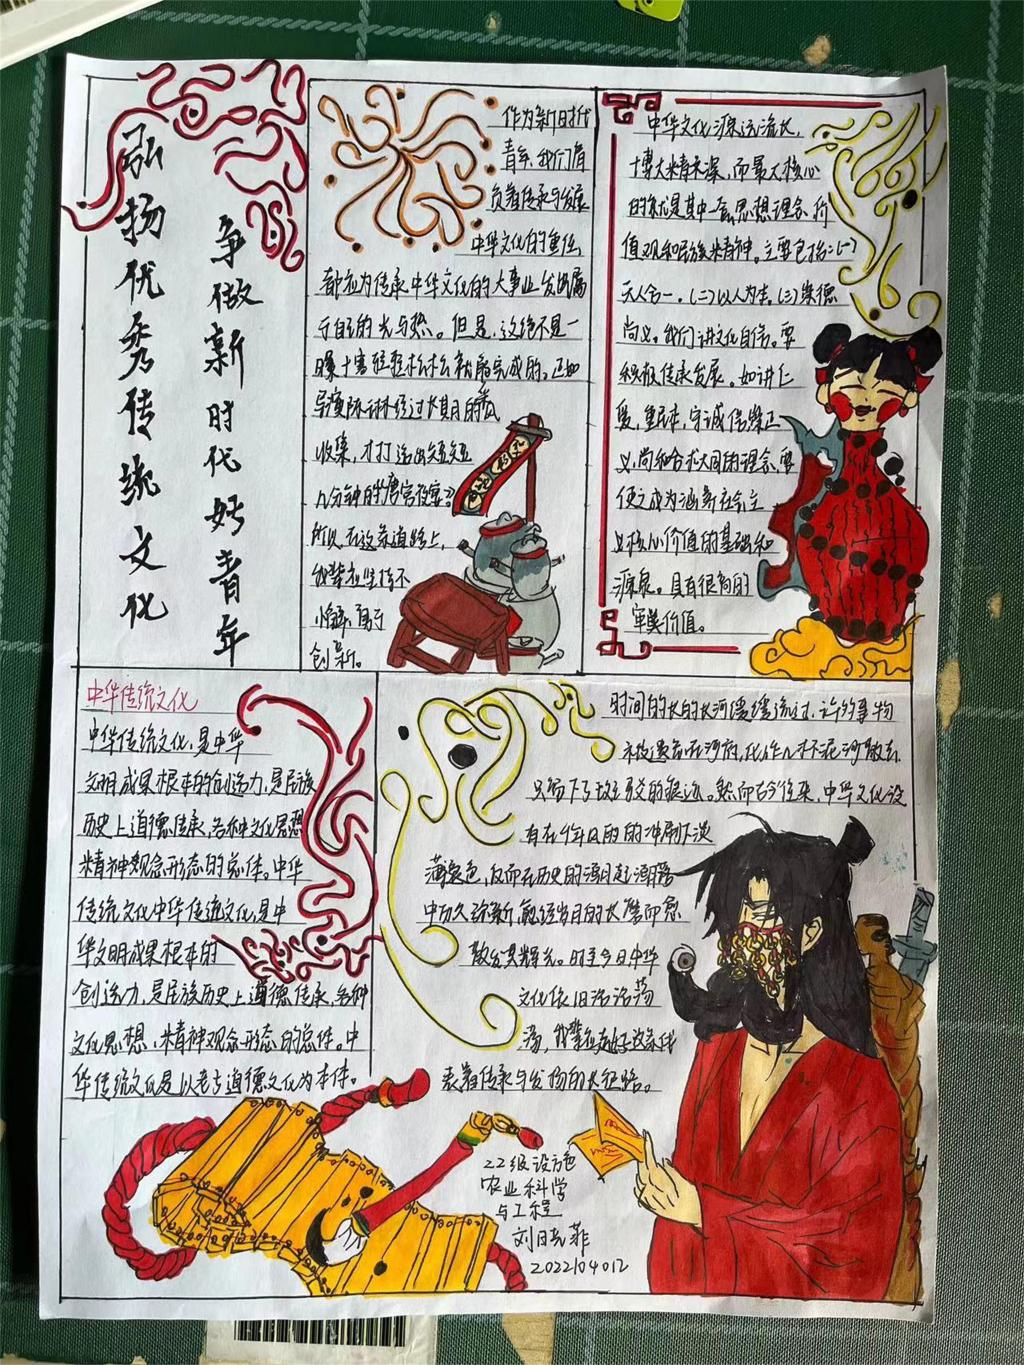 弘扬优秀传统文化
争做新时代好青年
作为新时代
青年,我们肩
负着传承与发展
中华文化的重任,
都应为传承中华文化的大事业发出属
于自己的光与热。但是,这绝不是一
朝十害轻轻松松就能完成的。正如
导演陈琳琳经过长期的
收集,才打造出短短
几分钟的《唐宫夜宴》
所以,在这条道路上,
我辈应坚持不
懈,勇于
创新。
中华文化源远流长,
博大精深,而最大核心
的就是其中一套思想理念,价
值观和民族精神。主要包括:(一)
天人合一。(二)以人为本。(三)崇德
尚义。我们讲文化自信。要
积极传承发展。如讲仁
爱,重民本,守诚信崇正
义,尚和合求大同的理念,要
使之成为涵养社会主
义核心价值的基础和
源泉。具有很高的
审美价值。
中华传统文化
中华传统文化,是中华
文明成果根本的创造力,是民族
历史上道德传承,各种文化思想
精神观念形态的总体。中华
传统文化中华传统文化,是中
华文明成果根本的
创造力,是民族历史上道德传承,各种
文化思想,精神观念形态的总体。中
华传统文化是以老子道德文化为本体。
时间的长的长河缓缓流过,许多事物
被遗忘在河底,化作
只留下了斑驳的痕迹。然而古今往来,中华文化没
有在年月的的冲刷下淡
薄褪色,反而在历史的
中历久弥新,
散发其辉光。时至今日中华
文化依旧浩浩荡
荡,我辈应走好这条代
表着传承与发扬的长征路。
22级设施
农业科学
与工程
刘日菲
2022104012